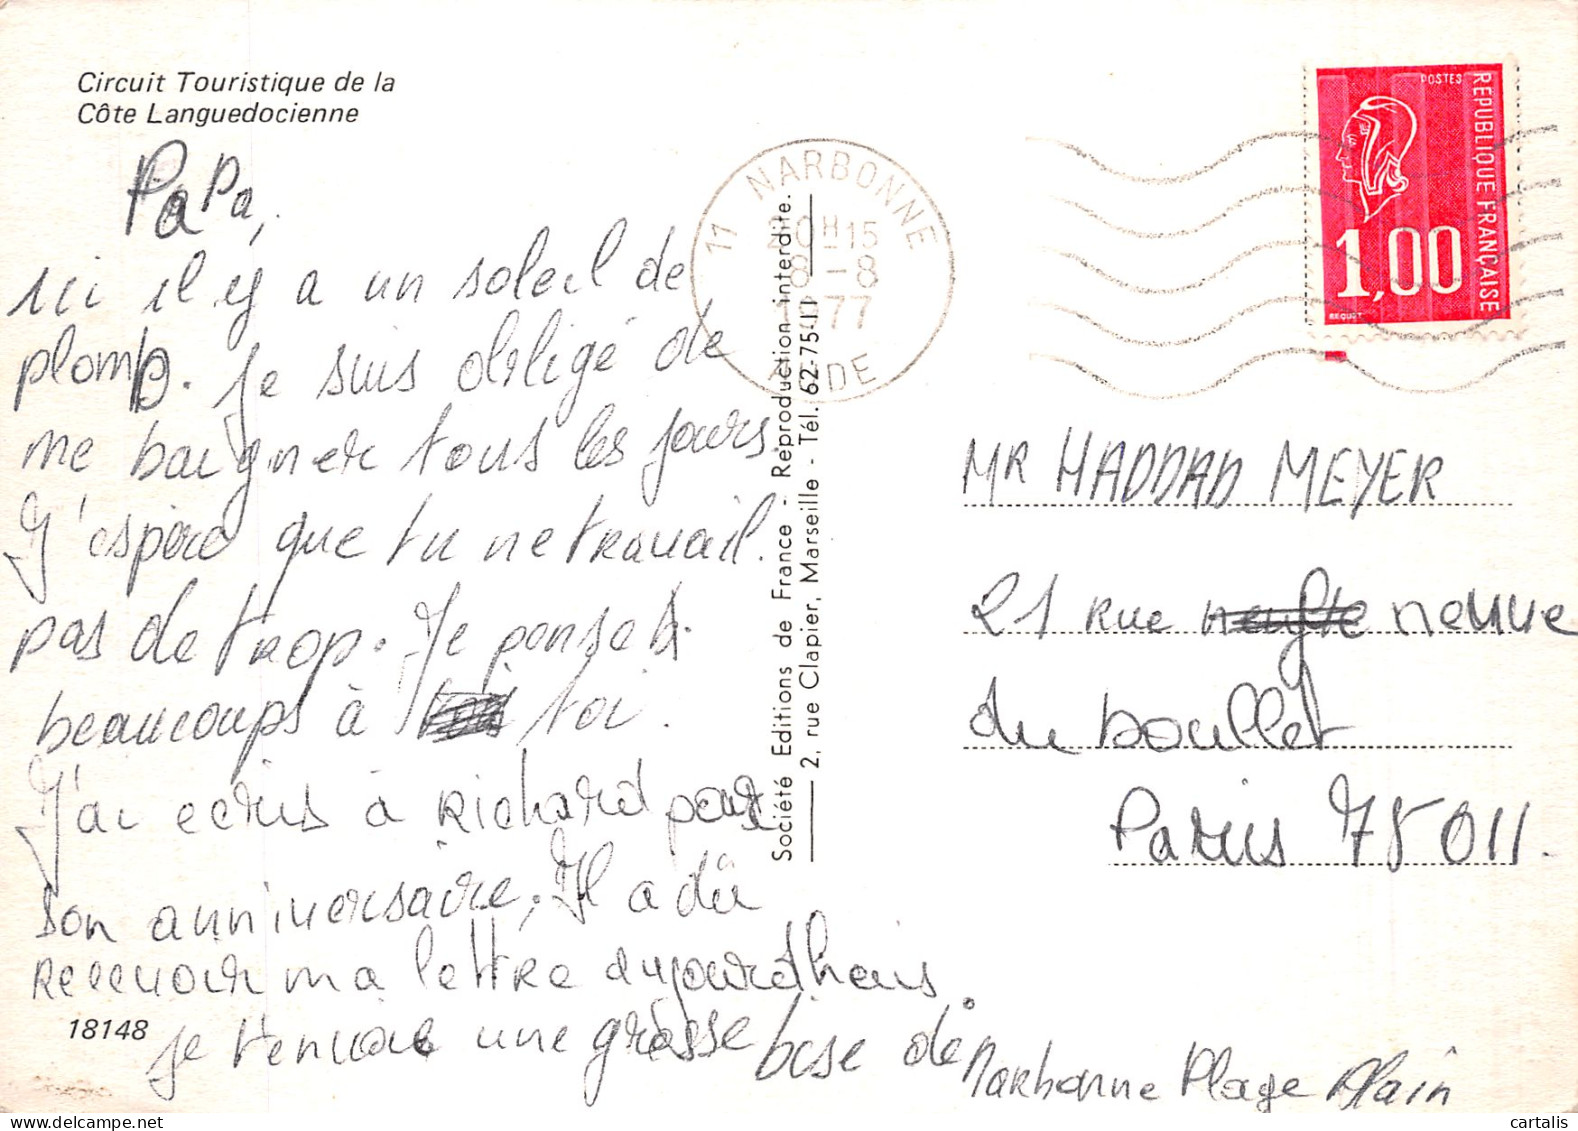 Circuit Touristique de la
Côte Languedocienne
PaPa,
ici il y a un soleil de
plomb. Je suis obligé de
me baigner tous les jours.
J'espère que tu ne travail.
pas de trop. Je pense
beaucoups à toi.
J'ai ecris à Richard pour
son anniversaire. Il a dû
recevoir ma lettre aujourdhuis.
je t'envoie une grosse bise de Narbonne Plage Alain
18148
Société Editions de France - Reproduction interdite.
2, rue Clapier, Marseille - Tél. 62-75-11
11 NARBONNE
20H15
8-8
1977
AUDE
POSTES
REPUBLIQUE FRANÇAISE
1,00
BEQUET
MR HADDAD MEYER
21 Rue neuve
du boullet
Paris 75011.
delcampe.net
cartalis